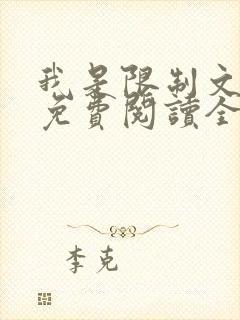 我是限制文
免費閱讀全
李克